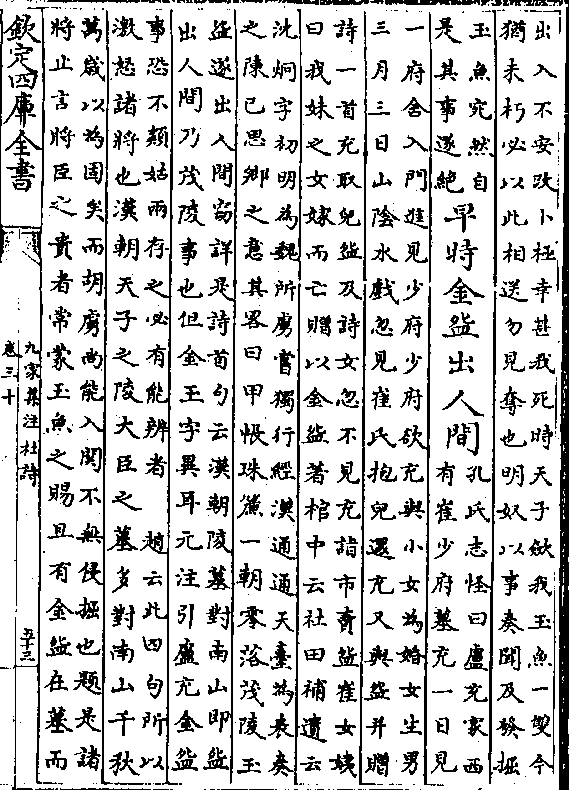 出入不安改卜極幸甚我死時天子歛我玉魚一雙今
猶未朽必以此相送勿見奪也明奴以事奏聞及發掘
玉魚宛然自
是其事遂絶
早時金盌出人間
孔氏志怪曰盧充家西
有崔少府墓充一日見
一府舍入門進見少府少府欲充與小女為婚女生男
三月三日山陰水戲忽見崔氏抱兒還充又與盌并贈
詩一首充取兒盌及詩女忽不見充詣市賣盌崔女姨
曰我妹之女嫁而亡贈以金盌著棺中云社田補遺云
沈烱字初明為魏所虜嘗獨行經漢通通天臺為表奏
之陳已思鄉之意其畧曰甲帳珠簾一朝零落茂陵玉
盌遂出人間窃詳是詩首句云漢朝陵墓對南山即盌
出人間乃茂陵事也但金玉字異耳元注引盧充金盌
事恐不類姑兩存之必有能辨者 趙云此四句所以
激怒諸將也漢朝天子之陵大臣之墓多對南山千秋
萬歲以為固矣而胡虜尚能入關不無侵掘也題是諸
將止言將臣之貴者常蒙玉魚之賜且有金盌在墓而
欽定四庫全書
九家集注杜詩
卷三十
五十三